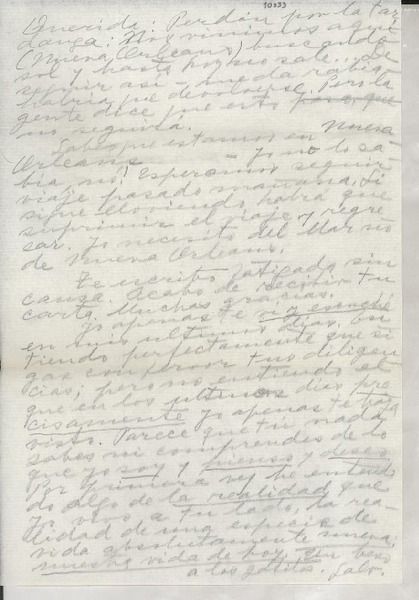 10033
Querida: Perdón por la tar-
danza: Nos vinimos aquí
(Nueva Orleans) buscando
sol y hasta hoy no sale. De
seguir así
habría que devolverse. Pero la
gente dice que esto
no seguirá.
Sabes que estamos en Nueva
Orleans Yo no lo sa-
bía, no! Esperamos seguir
viaje pasado mañana. Si
sigue lloviendo, habrá que
suprimir el viaje y regre
sar. Yo necesito del Mar no
de Nueva Orleans.
Te escribo fatigada sin
causa. Acabo de recibir tu
carta. Muchas gracias.
Yo apenas te vi y escuché
en mis últimos días. En-
tiendo perfectamente que si
gas con tus diligen
cias; pero no entiendo el
que en los últimos días pre
cisamente yo apenas te haya
visto. Parece que tú nada
sabes ni comprendes de lo
que yo soy y pienso y deseo
Por primera vez he entendi
do algo de la realidad que
yo vivo a tu lado, la rea-
lidad de una especie de
vida absolutamente nueva:
nuestra vida de hoy. Un beso
a los gatitos. Gab.